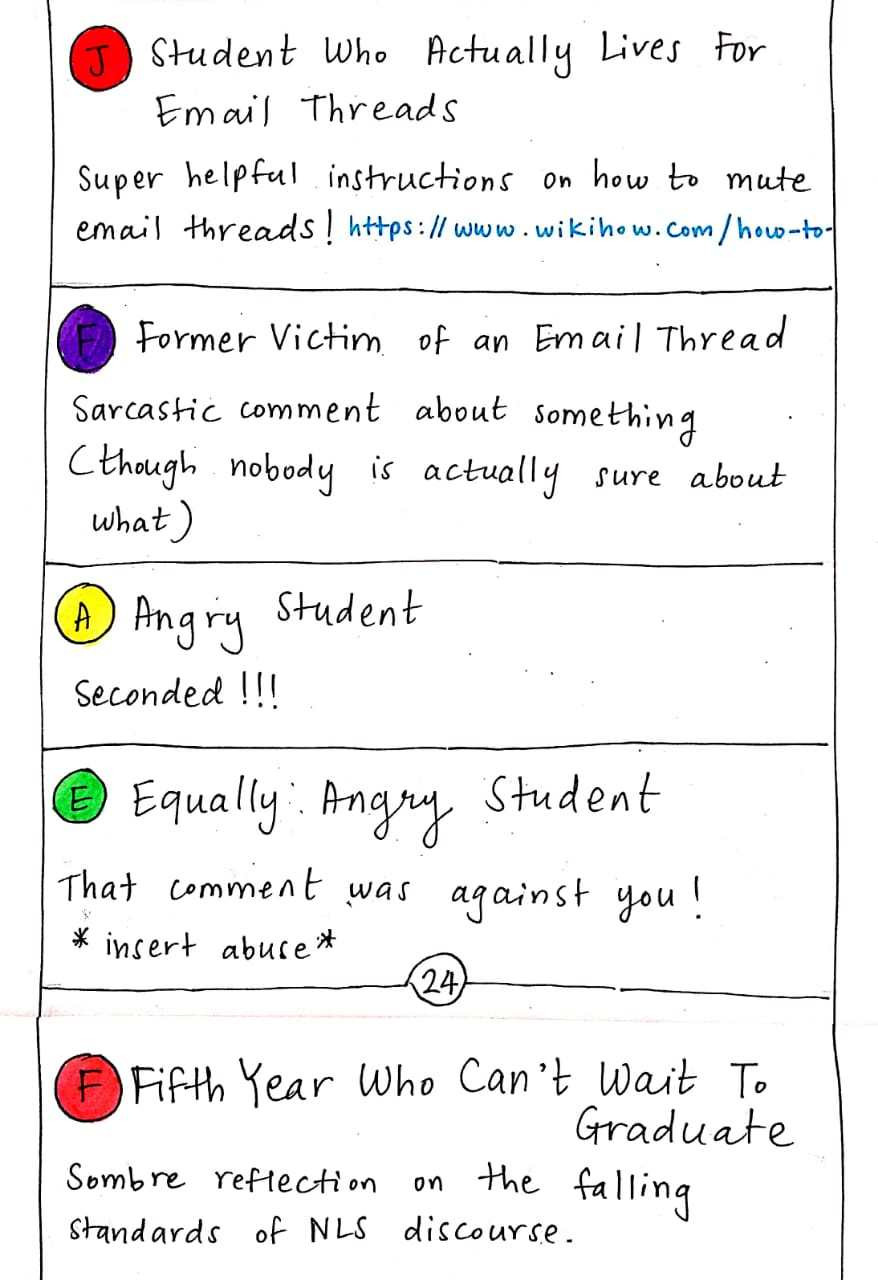 J Student Who Actually Lives For
Email Threads
Super helpful instructions on how to mute
email threads! https://www.wikihow.com/how-to-
F Former Victim of an Email Thread
Sarcastic comment about something
(though nobody is actually sure about
what)
A Angry Student
Seconded!!!
E Equally Angry Student
That comment was against you!
* insert abuse*
24
F Fifth Year Who Can't Wait To
Graduate
Sombre reflection on the falling
standards of NLS discourse.